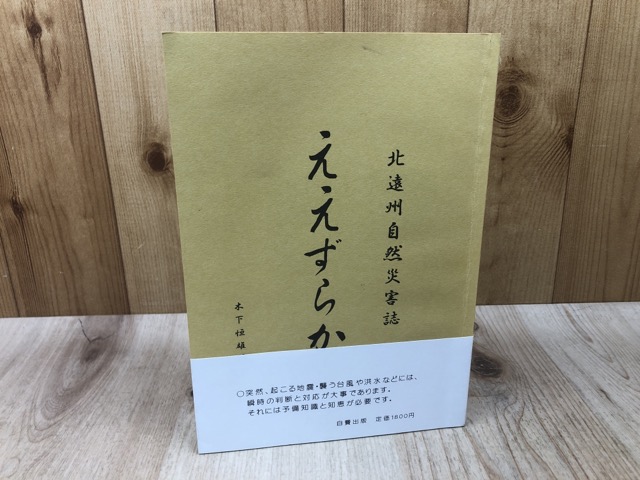 北遠州自然災害誌
ええずらか
木下恒雄
○突然、起こる地震・襲う台風や洪水などには、
瞬時の判断と対応が大事であります。
それには予備知識と知恵が必要です。
自費出版 定価1800円